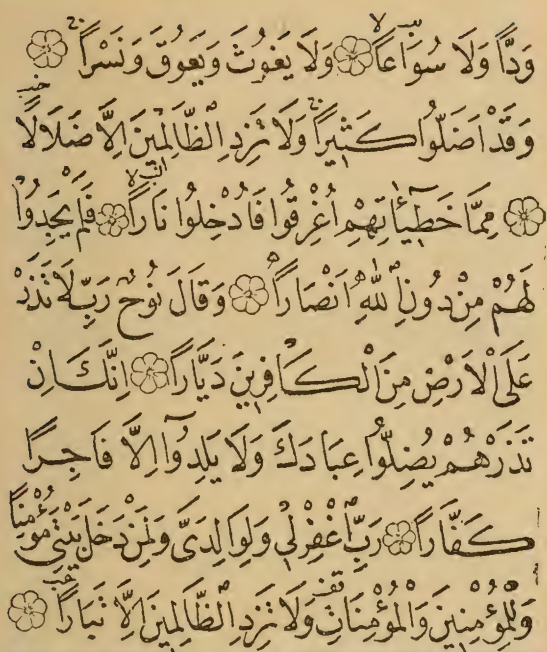 وَدًّا وَلَا سُوَاعًا ۞ وَلَا يَغُوثَ وَيَعُوقَ وَنَسْرًا ۞
وَقَدْ اَضَلُّوا كَثِيرًا وَلَا تَزِدِ الظَّالِمِينَ اِلَّا ضَلَالًا
۞ مِمَّا خَطِيٓئَاتِهِمْ اُغْرِقُوا فَاُدْخِلُوا نَارًا ۞ فَلَمْ يَجِدُوا
لَهُمْ مِنْ دُونِ اللّٰهِ اَنْصَارًا ۞ وَقَالَ نُوحٌ رَبِّ لَا تَذَرْ
عَلَى الْاَرْضِ مِنَ الْكَافِرِينَ دَيَّارًا ۞ اِنَّكَ اِنْ
تَذَرْهُمْ يُضِلُّوا عِبَادَكَ وَلَا يَلِدُوٓا اِلَّا فَاجِرًا
كَفَّارًا ۞ رَبِّ اغْفِرْ لِي وَلِوَالِدَيَّ وَلِمَنْ دَخَلَ بَيْتِيَ مُؤْمِنًا
وَلِلْمُؤْمِنِينَ وَالْمُؤْمِنَاتِ وَلَا تَزِدِ الظَّالِمِينَ اِلَّا تَبَارًا ۞